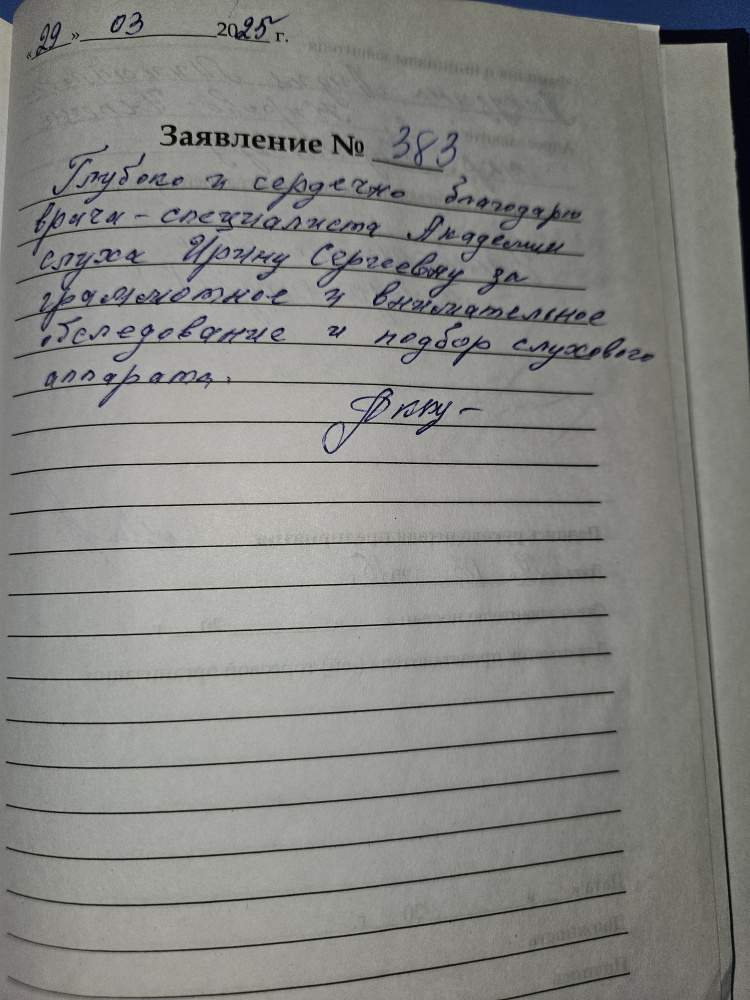 «29» 03 2025 г.
Заявление № 383
Глубоко и сердечно благодарю
врача-специалиста Академии
слуха Ирину Сергеевну за
грамотное и внимательное
обследование и подбор слухового
аппарата.